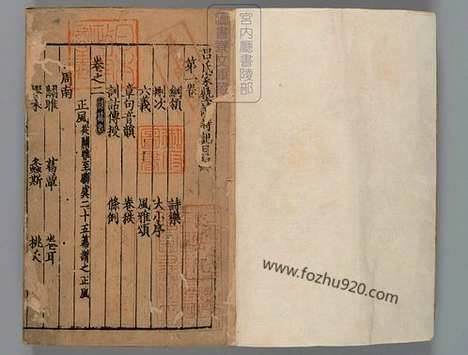 呂氏家塾讀詩記目錄
第一卷
綱領 詩樂
刪次 大小序
六義 風雅頌
章句音韻 卷袠
訓詁傳授 條例
卷之二
正風從關雎至騶虞二十五篇謂之正風
周南
關雎 葛覃 卷耳
樛木 螽斯 桃夭
宮內廳書陵部
圖書寮文庫
www.fozhu920.com